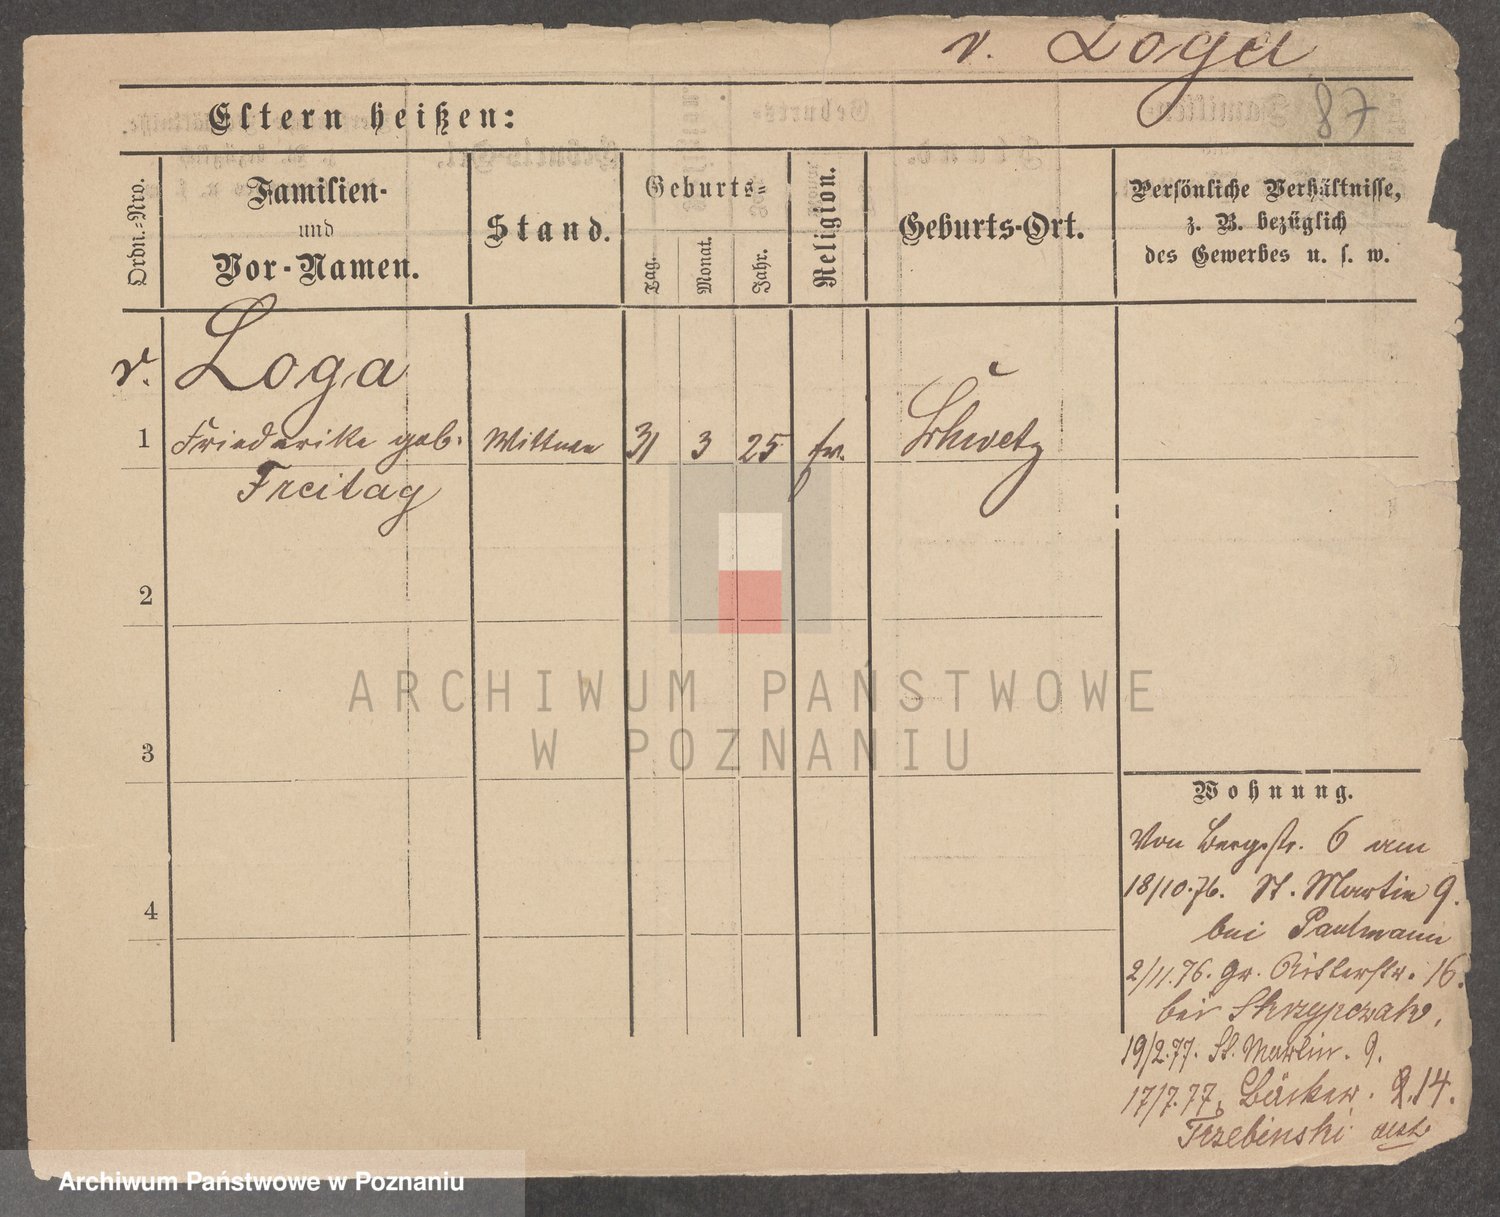 v. Loga
87
Eltern heißen:
Ordn.-Nro.
Familien-
und
Vor-Namen.
Stand.
Geburts-
Tag.
Monat.
Jahr.
Religion.
Geburts-Ort.
Persönliche Verhältnisse,
z. B. bezüglich
des Gewerbes u. s. w.
v. Loga
1 Friederike geb. Wittwe 31 3 25 ev. Schwetz
Freitag
2
3
4
Wohnung.
Von Bergstr. 6 am
18/10.76. St. Martin 9.
bei Paulmann
2/11.76. Gr. Ritterstr. 16.
bei Skrzypczak,
19/2.77. St. Martin. 9.
17/7.77, Bäcker. 14.
Trzebinski
ARCHIWUM PAŃSTWOWE
W POZNANIU
Archiwum Państwowe w Poznaniu